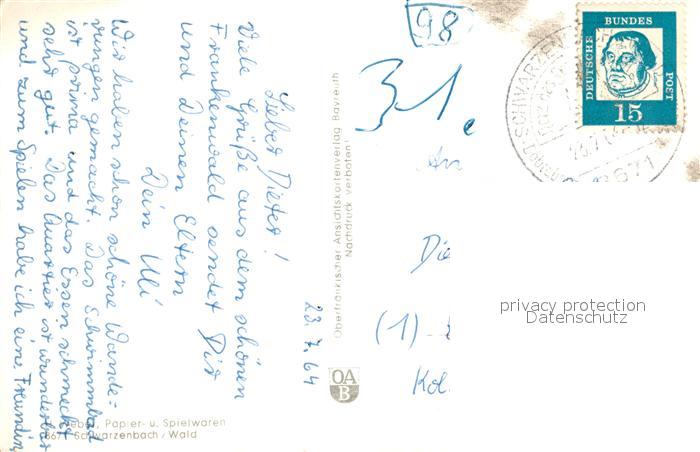 98
31.
DEUTSCHE BUNDES POST
15
SCHWARZEN
8671
Lieber Dieter!
Viele Grüße aus dem schönen
Frankenwald sendet Dir
und Deinen Eltern
Dein Uli
Wir haben schon schöne Wande=
rungen gemacht. Das Schwimmbad
ist prima und das Essen schmeckt
sehr gut. Das Quartier ist wunderbar
und zum Spielen habe ich eine Freundin
23.7.64
Oberfränkischer Ansichtskartenverlag Bayreuth
"Nachdruck verboten"
OA
B
An
Die
(1)
Kol
privacy protection
Datenschutz
Papier- u. Spielwaren
8671 Schwarzenbach / Wald